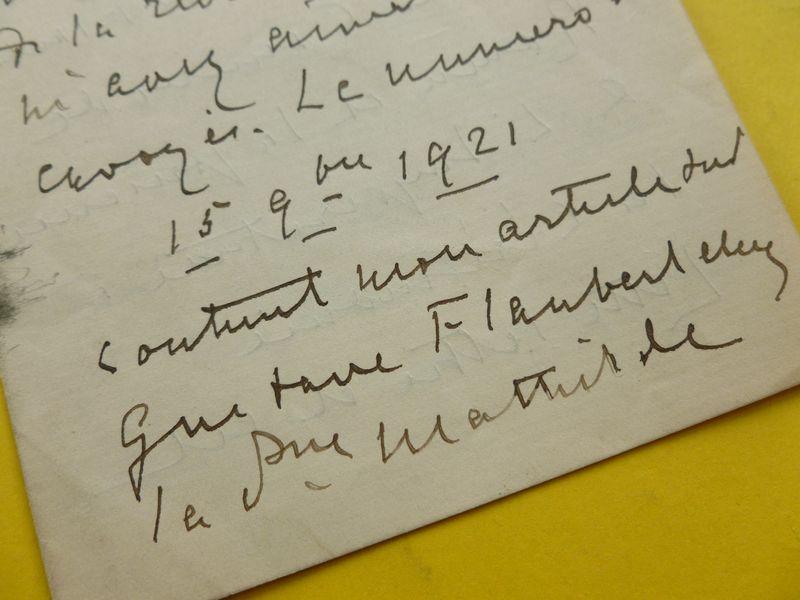 la
m'avez
envoyés. Le numéro
15 9bre 1921
contient mon article sur
Gustave Flaubert chez
la Mathilde